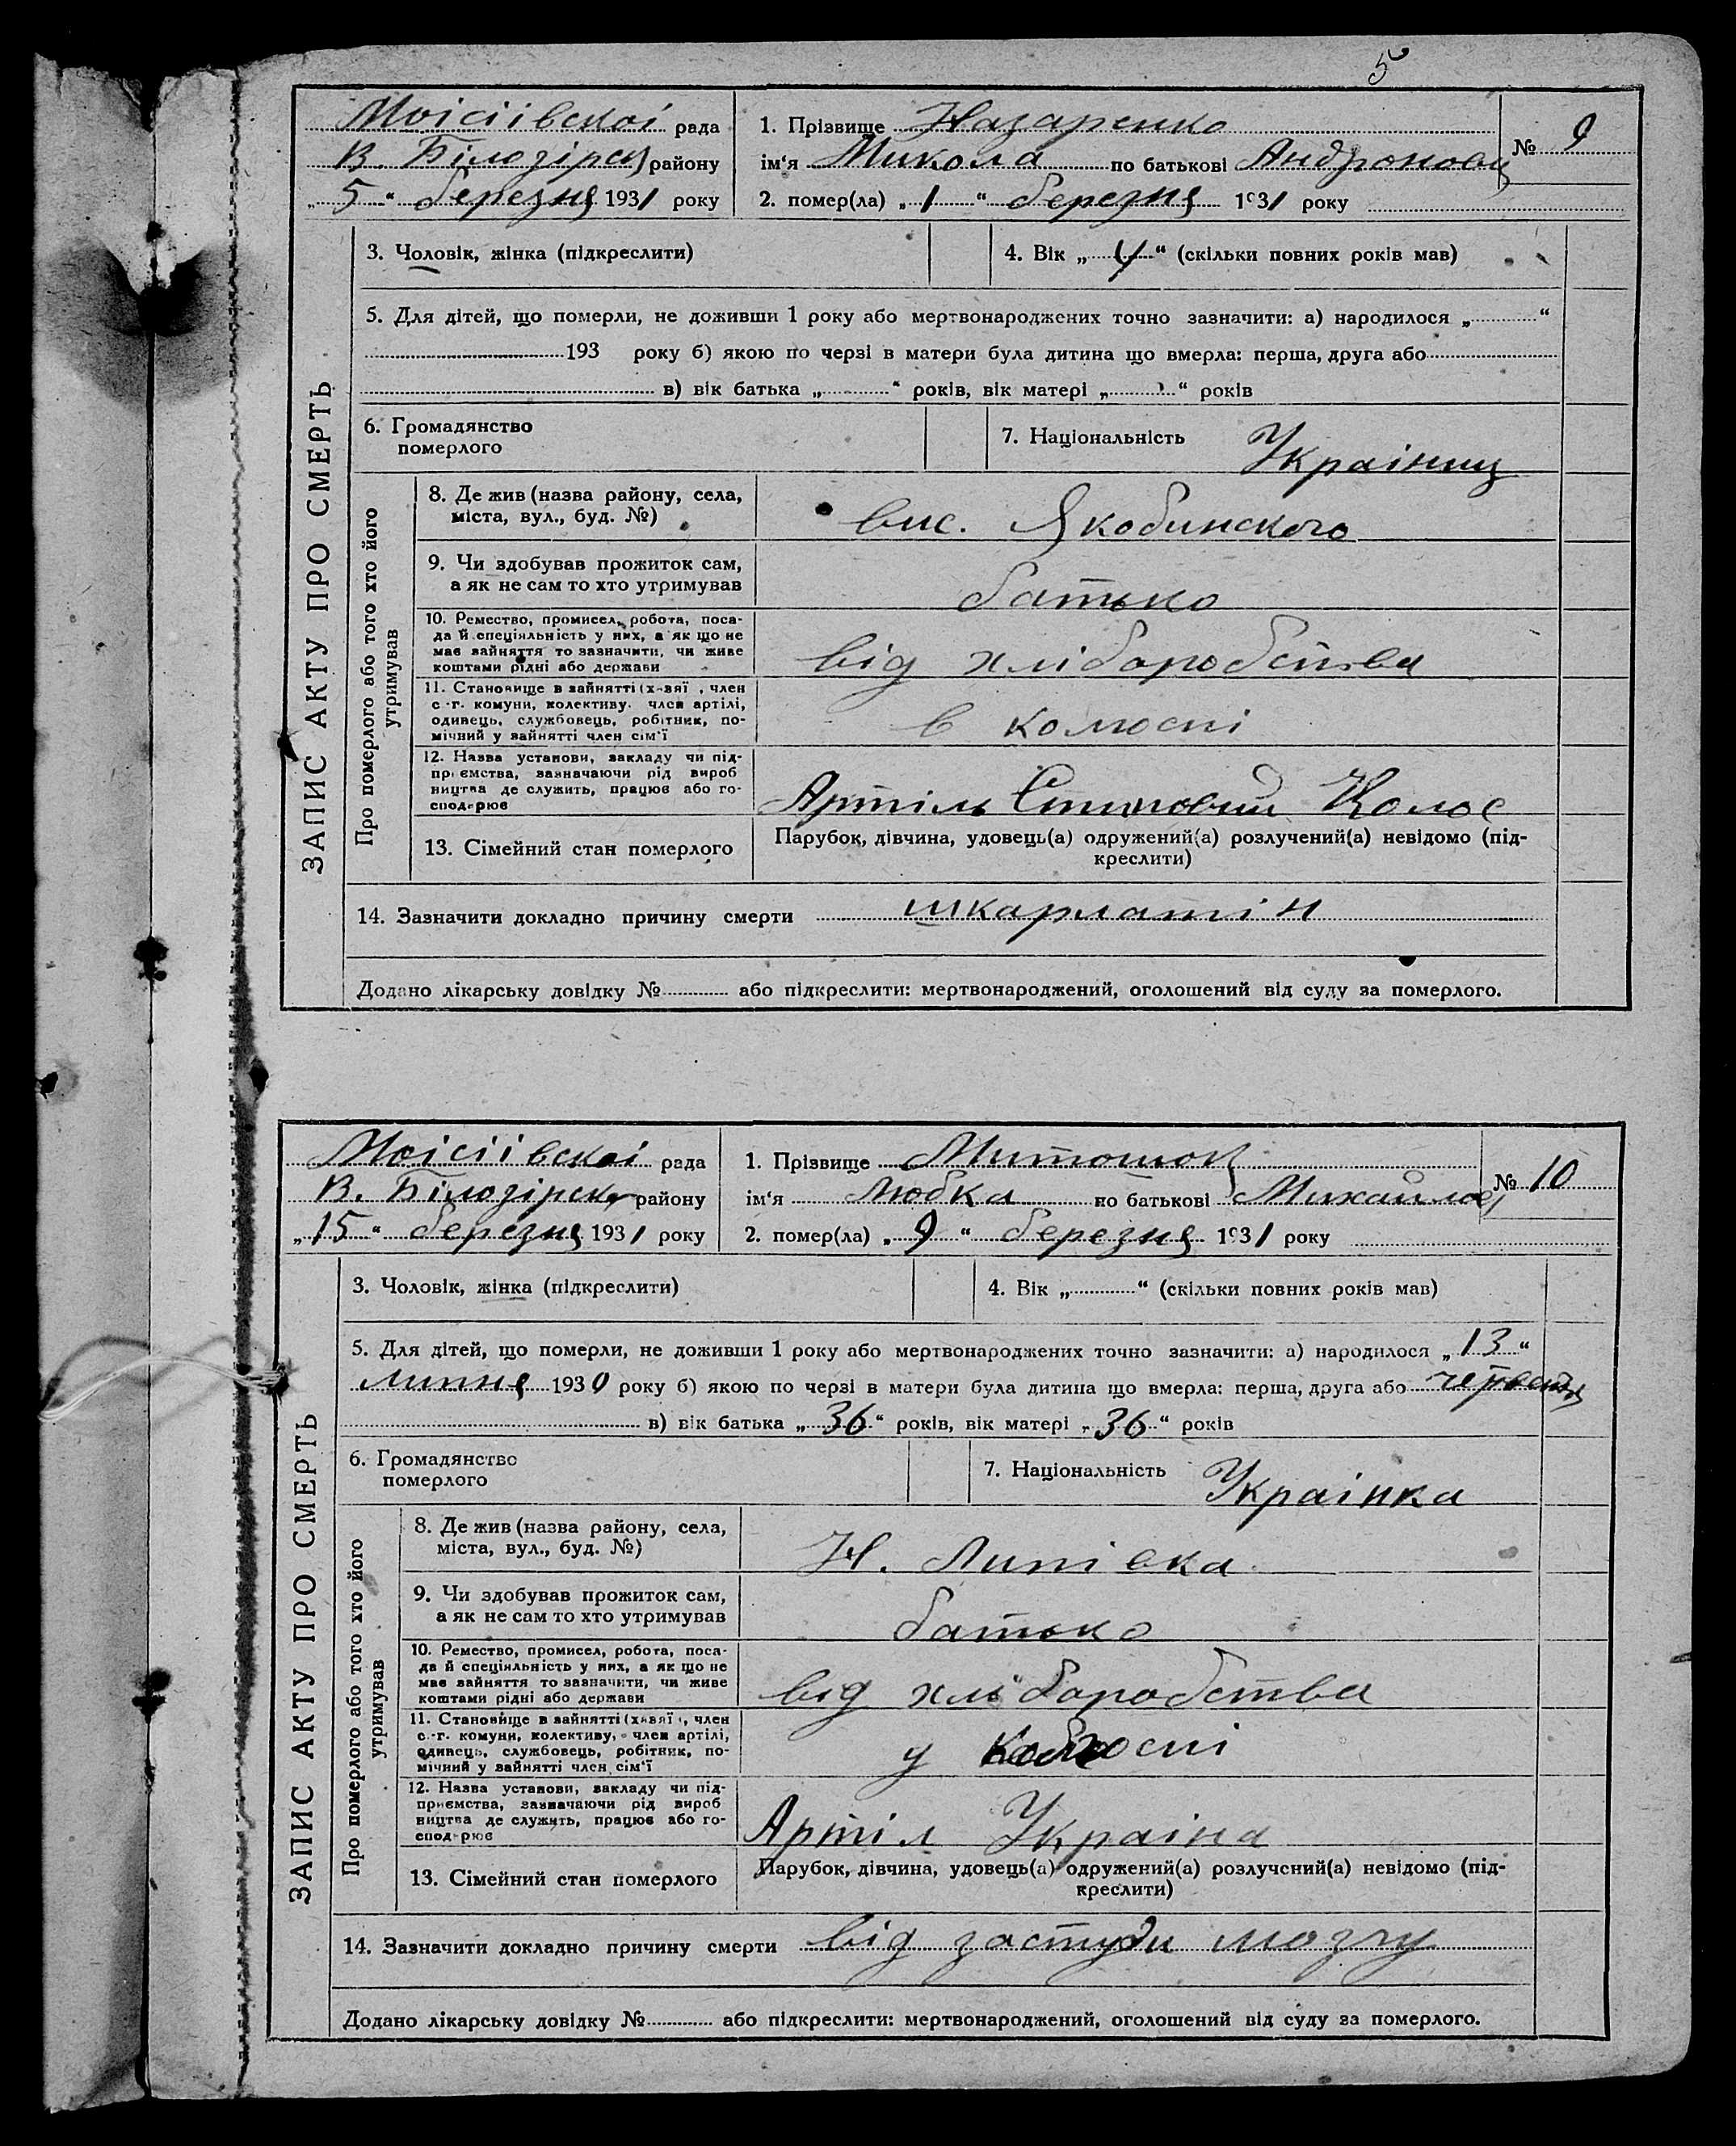 5
Моісіівскоі рада
В. Білозірск району
„ 5 “ березня 1931 року
1. Прізвище Назаренко
ім‘я Микола по батькові Андронович
2. помер(ла) „ 1 “ березня 1931 року
№ 9
3. Чоловік, жінка (підкреслити)
4. Вік „ 4 “ (скільки повних років мав)
5. Для дітей, що померли, не доживши 1 року або мертвонароджених точно зазначити: а) народилося „ “
193 року б) якою по черзі в матери була дитина що вмерла: перша, друга або
в) вік батька „ “ років, вік матері „ “ років
6. Громадянство
померлого
7. Національність Украінец
ЗАПИС АКТУ ПРО СМЕРТЬ
Про померлого або того хто його
утримував
8. Де жив (назва району, села,
міста, вул., буд. №)
вис. Якобинского
9. Чи здобував прожиток сам,
а як не сам то хто утримував
батько
10. Ремество, промисел, робота, поса-
да й спеціяльність у них, а як що не
має зайняття то зазначити, чи живе
коштами рідні або держави
від хліборобства
11. Становище в зайнятті (х-вяї , член
с.-г. комуни, колективу, член артілі,
одинець, службовець, робітник, по-
мічний у зайнятті член сім‘ї
в колгоспі
12. Назва установи, закладу чи під-
приємства, зазначаючи рід вироб
ництва де служить, працює або го-
сподарює
Артіль Степовий Колос
13. Сімейний стан померлого
Парубок, дівчина, удовець(а) одружений(а) розлучений(а) невідомо (під-
креслити)
14. Зазначити докладно причину смерти шкарлатін
Додано лікарську довідку № або підкреслити: мертвонароджений, оголошений від суду за померлого.
Моісіівскоі рада
В. Білозірск району
„ 15 “ березня 1931 року
1. Прізвище
ім‘я Любка по батькові Михайлов
2. помер(ла) „ 9 “ березня 1931 року
№ 10
3. Чоловік, жінка (підкреслити)
4. Вік „ “ (скільки повних років мав)
5. Для дітей, що померли, не доживши 1 року або мертвонароджених точно зазначити: а) народилося „ 13 “
липня 1930 року б) якою по черзі в матери була дитина що вмерла: перша, друга або
в) вік батька „ 36 “ років, вік матері „ 36 “ років
6. Громадянство
померлого
7. Національність Украінка
ЗАПИС АКТУ ПРО СМЕРТЬ
Про померлого або того хто його
утримував
8. Де жив (назва району, села,
міста, вул., буд. №)
Н. Липівка
9. Чи здобував прожиток сам,
а як не сам то хто утримував
батько
10. Ремество, промисел, робота, поса-
да й спеціяльність у них, а як що не
має зайняття то зазначити, чи живе
коштами рідні або держави
від хліборобства
11. Становище в зайнятті (х-вяї , член
с.-г. комуни, колективу, член артілі,
одинець, службовець, робітник, по-
мічний у зайнятті член сім‘ї
у колгоспі
12. Назва установи, закладу чи під-
приємства, зазначаючи рід вироб
ництва де служить, працює або го-
сподарює
Артіл Украіна
13. Сімейний стан померлого
Парубок, дівчина, удовець(а) одружений(а) розлучений(а) невідомо (під-
креслити)
14. Зазначити докладно причину смерти від застуди мозгу
Додано лікарську довідку № або підкреслити: мертвонароджений, оголошений від суду за померлого.